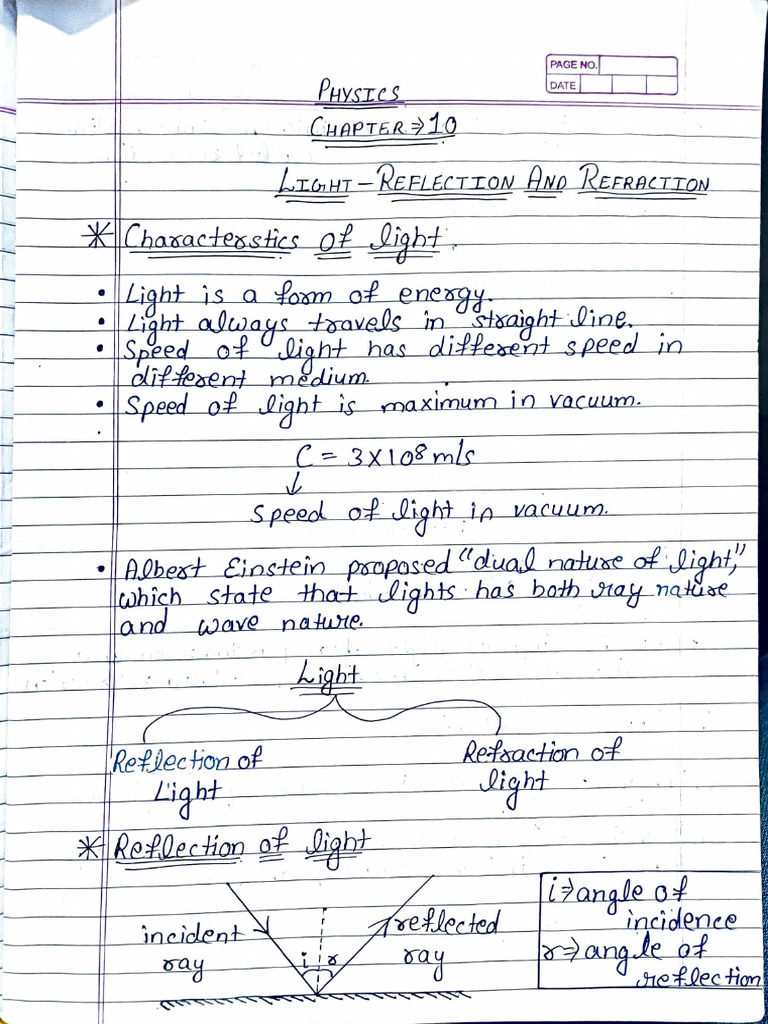 PAGE NO.
DATE
PHYSICS
CHAPTER⇒10
LIGHT-REFLECTION AND REFRACTION
* Characterstics of light.
• Light is a form of energy.
• Light always travels in straight line.
• Speed of light has different speed in
different medium.
• Speed of light is maximum in vacuum.
C = 3×10⁸ m/s
↓
Speed of light in vacuum.
• Albert Einstein proposed "dual nature of light,"
which state that lights has both ray nature
and wave nature.
Light
Reflection of
Light
Refraction of
light
* Reflection of light
incident
ray
i r
reflected
ray
i⇒angle of
incidence
r⇒angle of
reflection